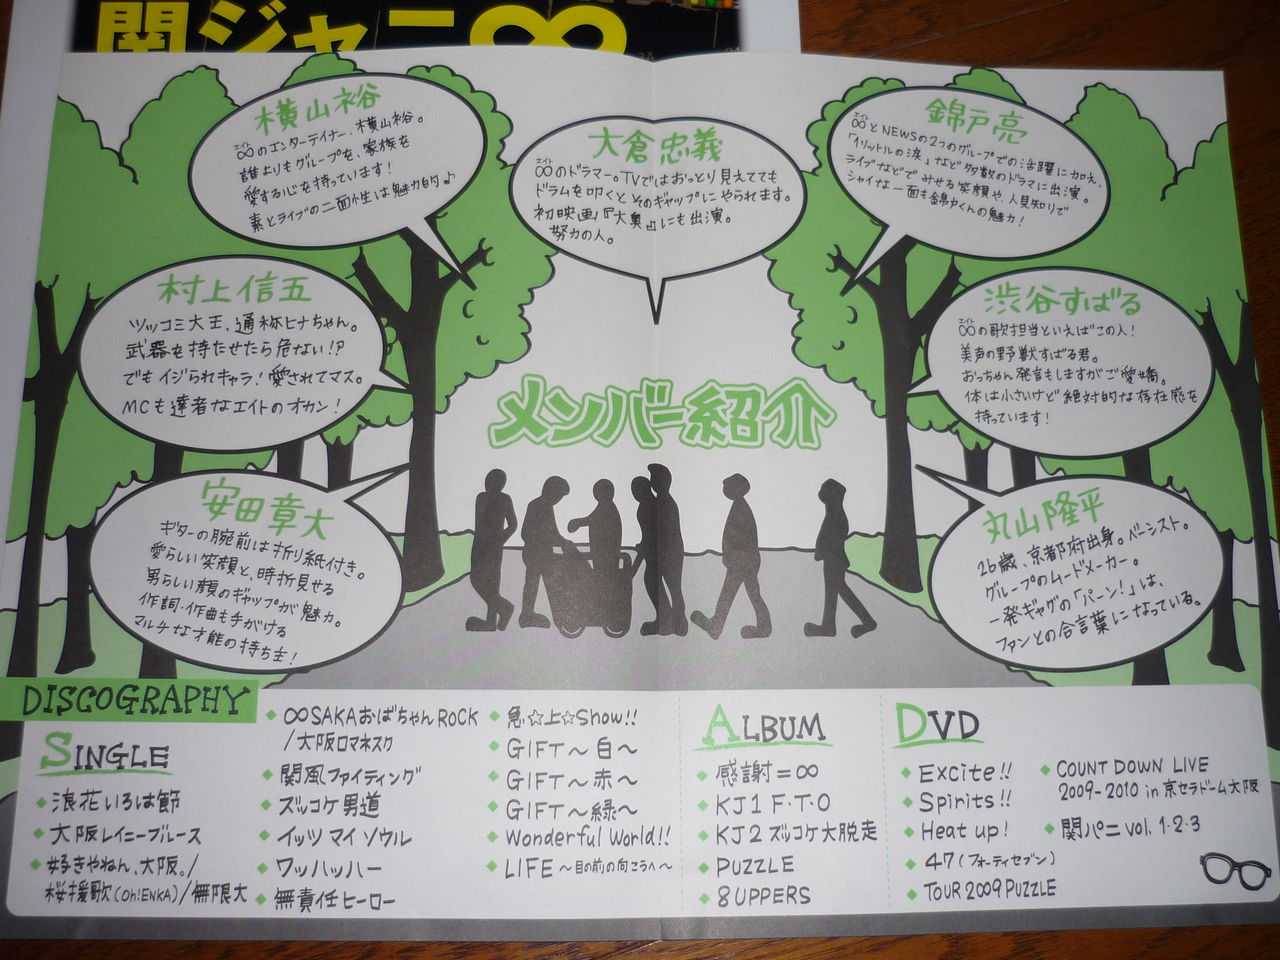 関ジャニ∞
横山裕
エイト
∞のエンターテイナー、横山裕。
誰よりもグループを、家族を
愛する心を持っています!
素とライブの二面性は魅力的♪
大倉忠義
エイト
∞のドラマー。TVではおっとり見えてても
ドラムを叩くとそのギャップにやられます。
初映画『大奥』にも出演。
努力の人。
錦戸亮
エイト
∞とNEWSの2つのグループでの活躍に加え、
「1リットルの涙」など多数のドラマに出演。
ライブなどでみせる笑顔や、人見知りで
シャイな一面も錦戸くんの魅力!
村上信五
ツッコミ大王、通称ヒナちゃん。
武器を持たせたら危ない!?
でもイジられキャラ!愛されてマス。
MCも達者なエイトのオカン!
渋谷すばる
エイト
∞の歌担当といえばこの人!
美声の野獣すばる君。
おっちゃん発言もしますがご愛嬌。
体は小さいけど絶対的な存在感を
持っています!
メンバー紹介
安田章大
ギターの腕前は折り紙付き。
愛らしい笑顔と、時折見せる
男らしい顔のギャップが魅力。
作詞・作曲も手がける
マルチな才能の持ち主!
丸山隆平
26歳、京都府出身。バーシスト。
グループのムードメーカー。
一発ギャグの「パーン!」は、
ファンとの合言葉になっている。
DISCOGRAPHY
SINGLE
浪花いろは節
大阪レイニーブルース
好きやねん、大阪。/
桜援歌(Oh!ENKA)/無限大
∞SAKAおばちゃんROCK
/大阪ロマネスク
関風ファイティング
ズッコケ男道
イッツ マイ ソウル
ワッハッハー
無責任ヒーロー
急☆上☆Show!!
GIFT〜白〜
GIFT〜赤〜
GIFT〜緑〜
Wonderful World!!
LIFE〜目の前の向こうへ〜
ALBUM
感謝=∞
KJ1 F・T・O
KJ2 ズッコケ大脱走
PUZZLE
8UPPERS
DVD
Excite!!
Spirits!!
Heat up!
47(フォーティセブン)
TOUR 2009 PUZZLE
COUNT DOWN LIVE
2009-2010 in 京セラドーム大阪
関パニ vol.1・2・3